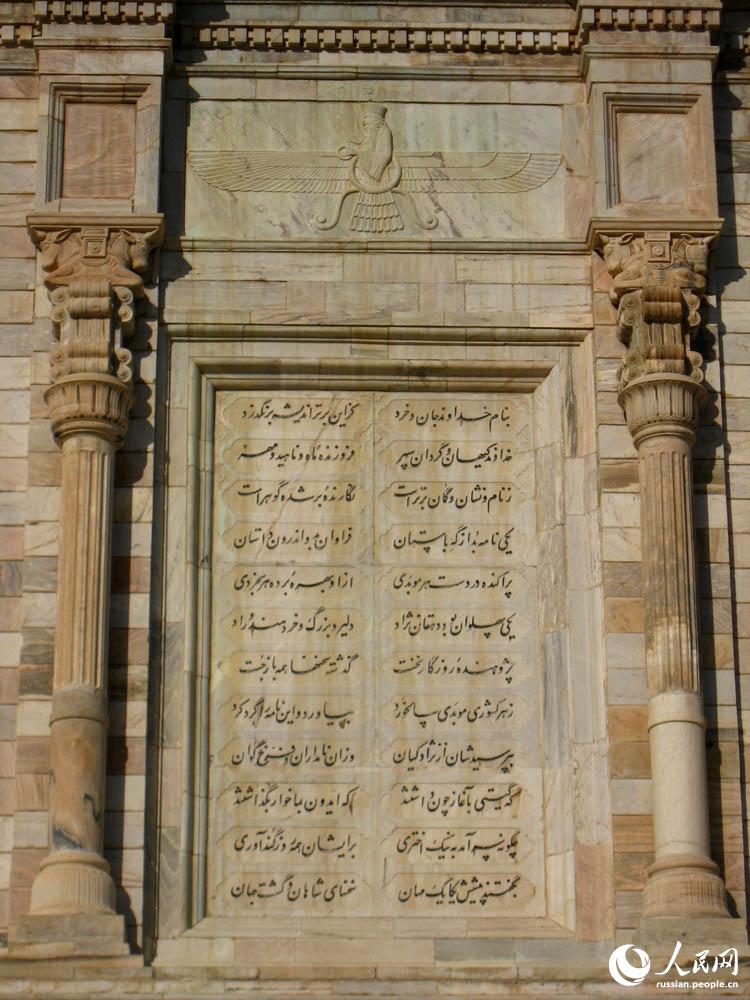 بنام خداوند جان و خرد کزین برتر اندیشه برنگذرد
خداوند کیهان و گردان سپهر فروزندهٔ ماه و ناهید و مهر
ز نام و نشان و گمان برتر است نگارندهٔ بر شده گوهر است
یکی نامه بُد از گه باستان فراوان بدو اندرون داستان
پراکنده در دست هر موبدی ازو بهرهٔ برده هر بخردی
یکی پهلوان بود دهقان نژاد دلیر و بزرگ و خردمند و راد
پژوهندهٔ روزگار نخست گذشته سخنها همه باز جست
ز هر کشوری موبدی سالخورد بیاورد و این نامه را گرد کرد
بپرسیدشان از نژاد کیان وزان نامداران و فرخ گوان
که گیتی بآغاز چون داشتند که ایدون بما خوار بگذاشتند
چگونه سرآمد به نیک اختری برایشان همه روز گندآوری
بگفتند پیشش یکایک مهان سخنهای شاهان و گشت جهان
人民网
russian.people.cn